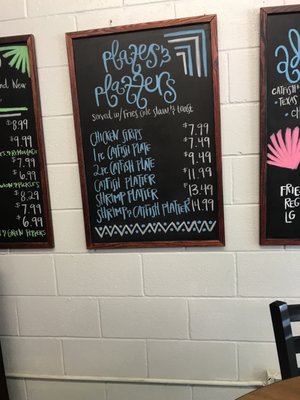 and New
$8.99
$9.99
$7.99
$6.99
$8.29
$7.99
$6.99
Plates &
Platters
Served w/ Fries Cole Slaw & toast
Chicken Strips $7.99
1 pc Catfish Plate $7.49
2 pc Catfish Plate $9.49
Catfish Platter $11.99
Shrimp Platter $13.49
Shrimp & Catfish Platter 14.99
Catfish
Frie
Reg
LG